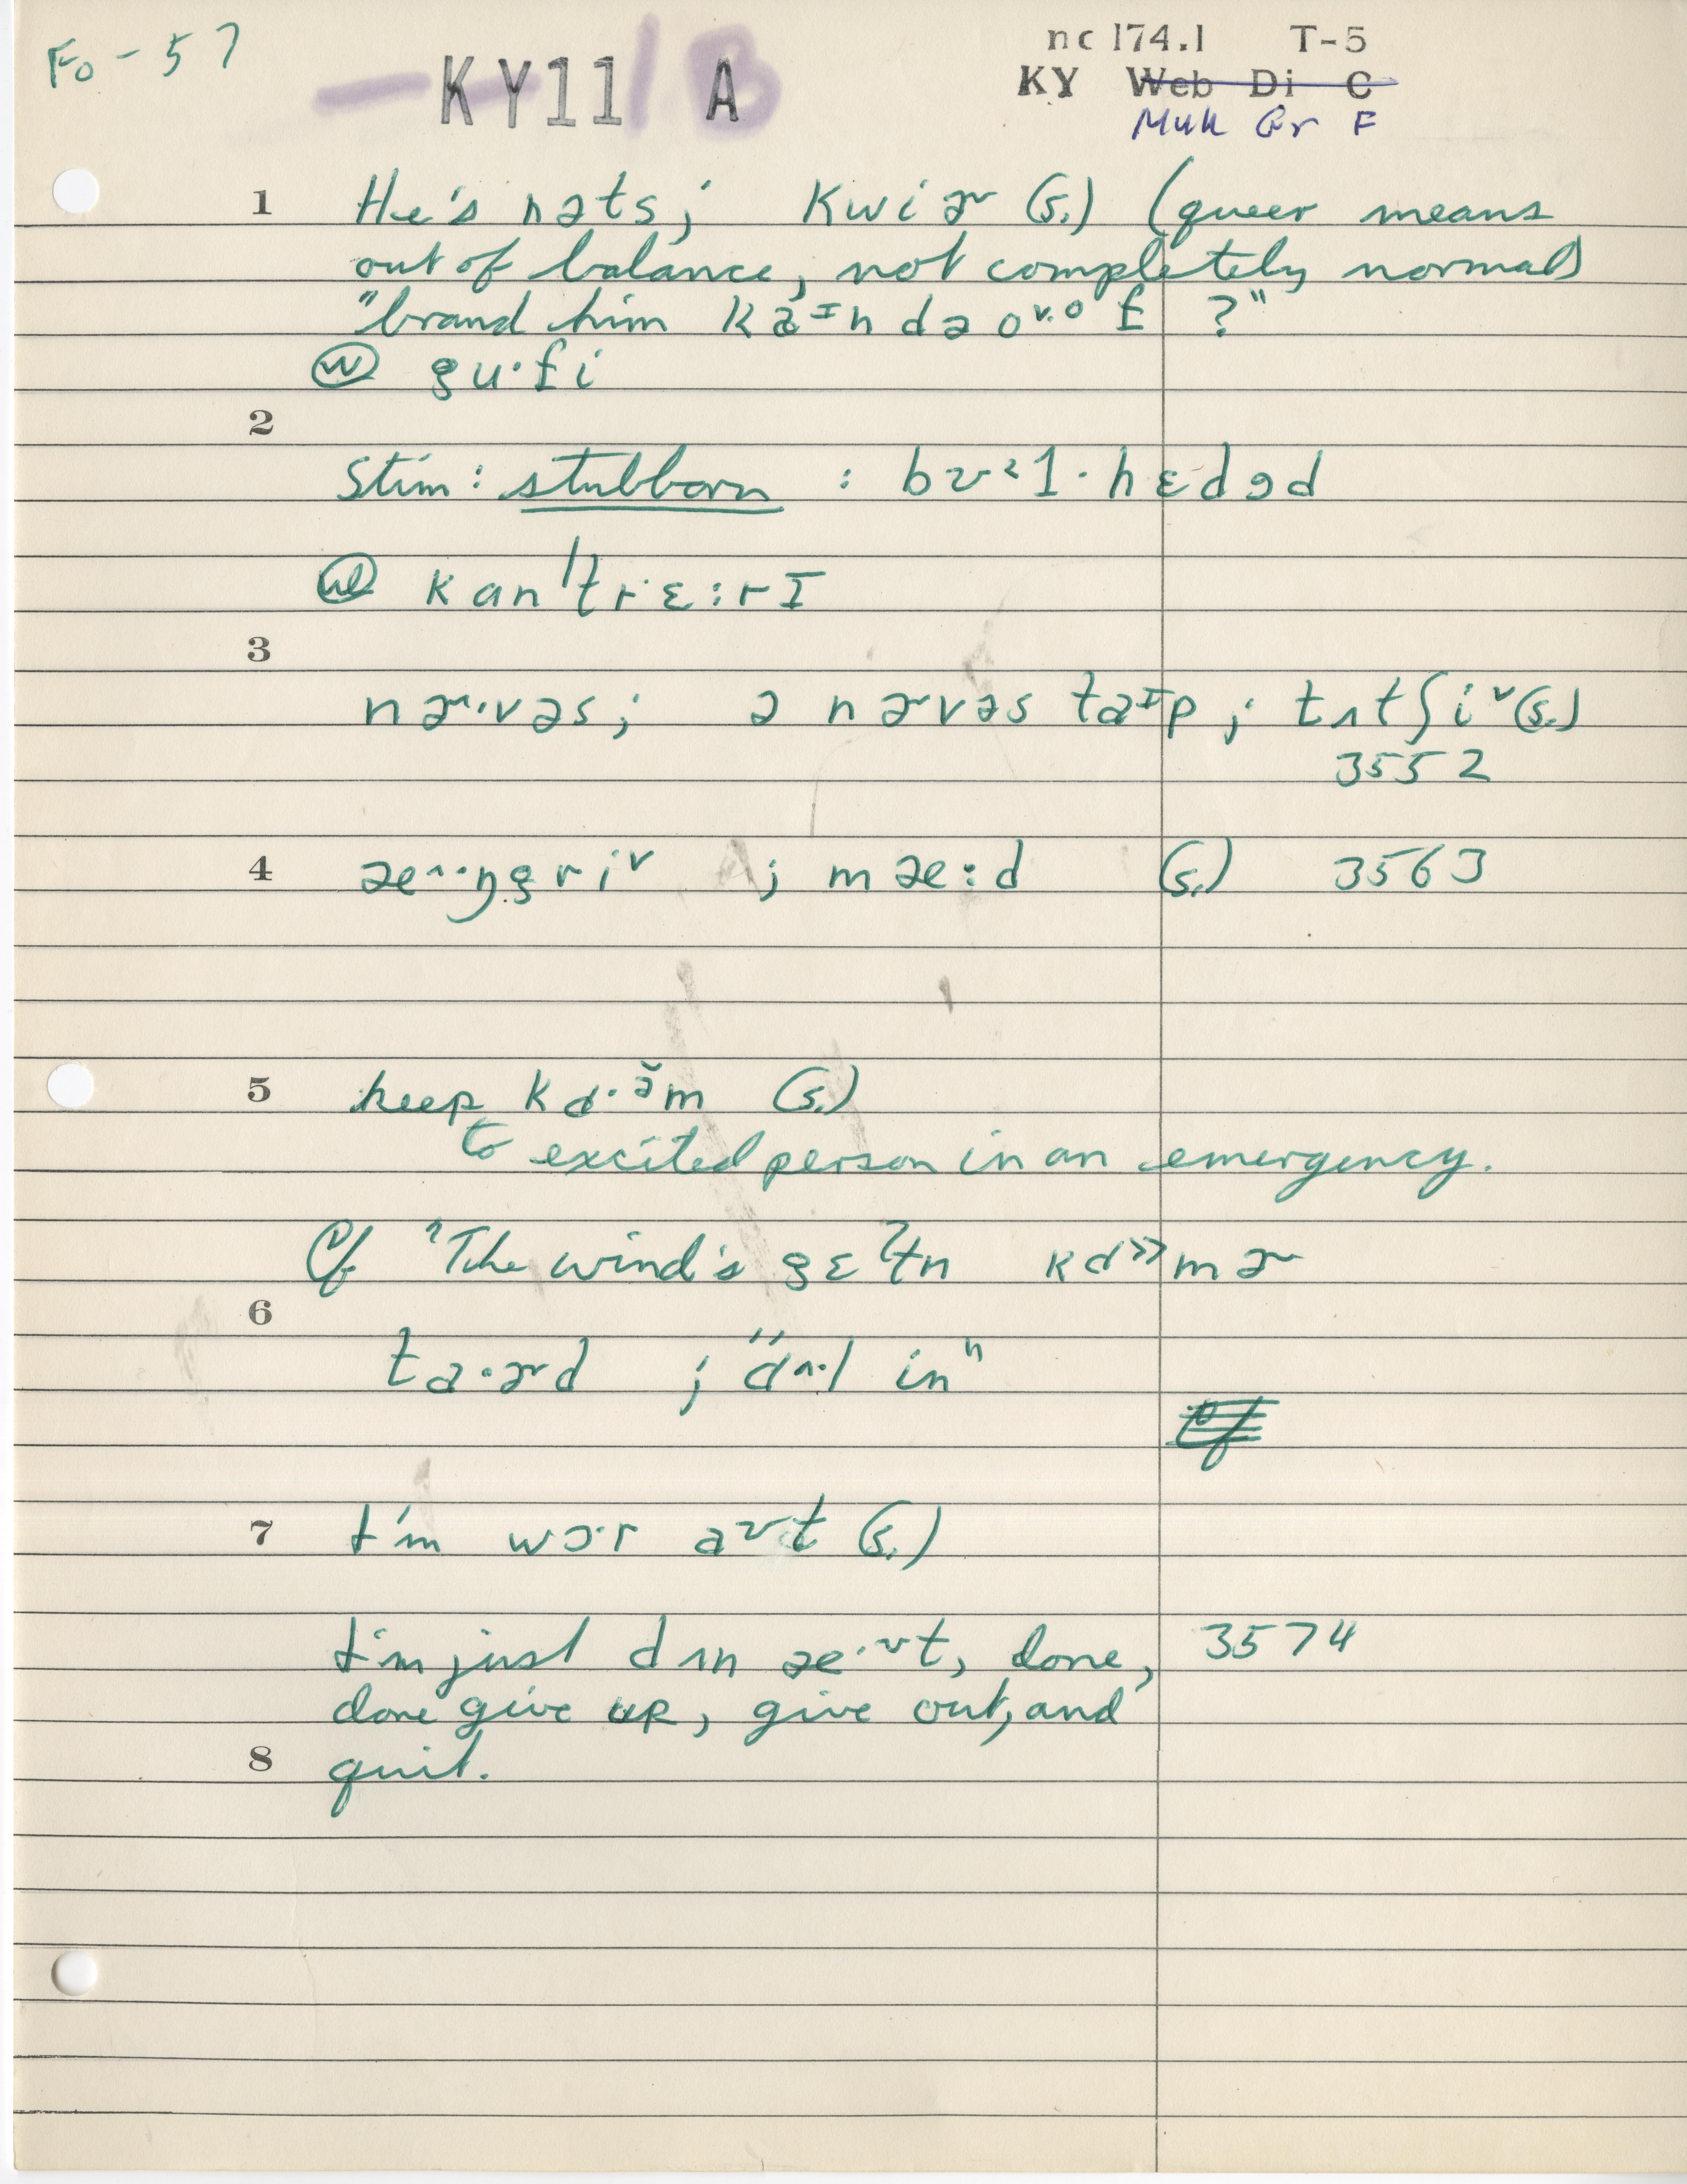 Fo-57
KY11 A B
nc 174.1 T-5
KY Web Di C
Muh Gr F
1 He's nəts; kwiɚ (s.) (queer means
out of balance, not completely normal)
"brand him kaᶦn də ɔᵛ·ᵒ f ?"
ⓦ gu·fi
2
Stim: stubborn : bʊ˂l·hɛdəd
kanˈtrɛ:rɪ
3
nɚ·vəs; ə nɚvəs taᶦp; tʌtʃiᵛ (s.)
3552
4 æ^··ŋgriᵛ ; mæ:d (s.) 3563
5 keep kɑ·ə̆m (s.)
to excited person in an emergency.
Cf "The wind's gɛʔtn kɑ»mɚ
6
ta·ɚd ; "dʌ·l in"
7 I'm wɔ·r aʊt (s.)
I'm just dʌn æ·ʊt, done, 3574
done give up, give out, and
8 quit.